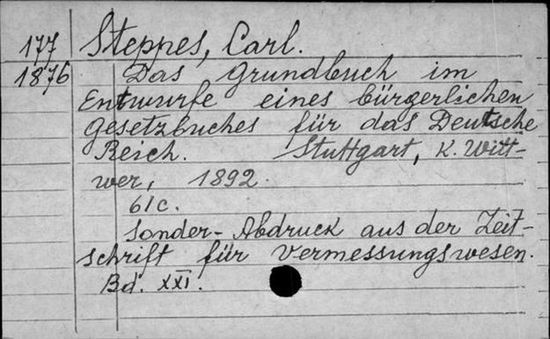 177 Steppes, Carl.
1876 Das Grundbuch im
Entwurfe eines bürgerlichen
Gesetzbuches für das Deutsche
Reich. Stuttgart, K. Witt-
wer, 1892.
61c.
Sonder-Abdruck aus der Zeit-
schrift für Vermessungswesen.
Bd. XXI.